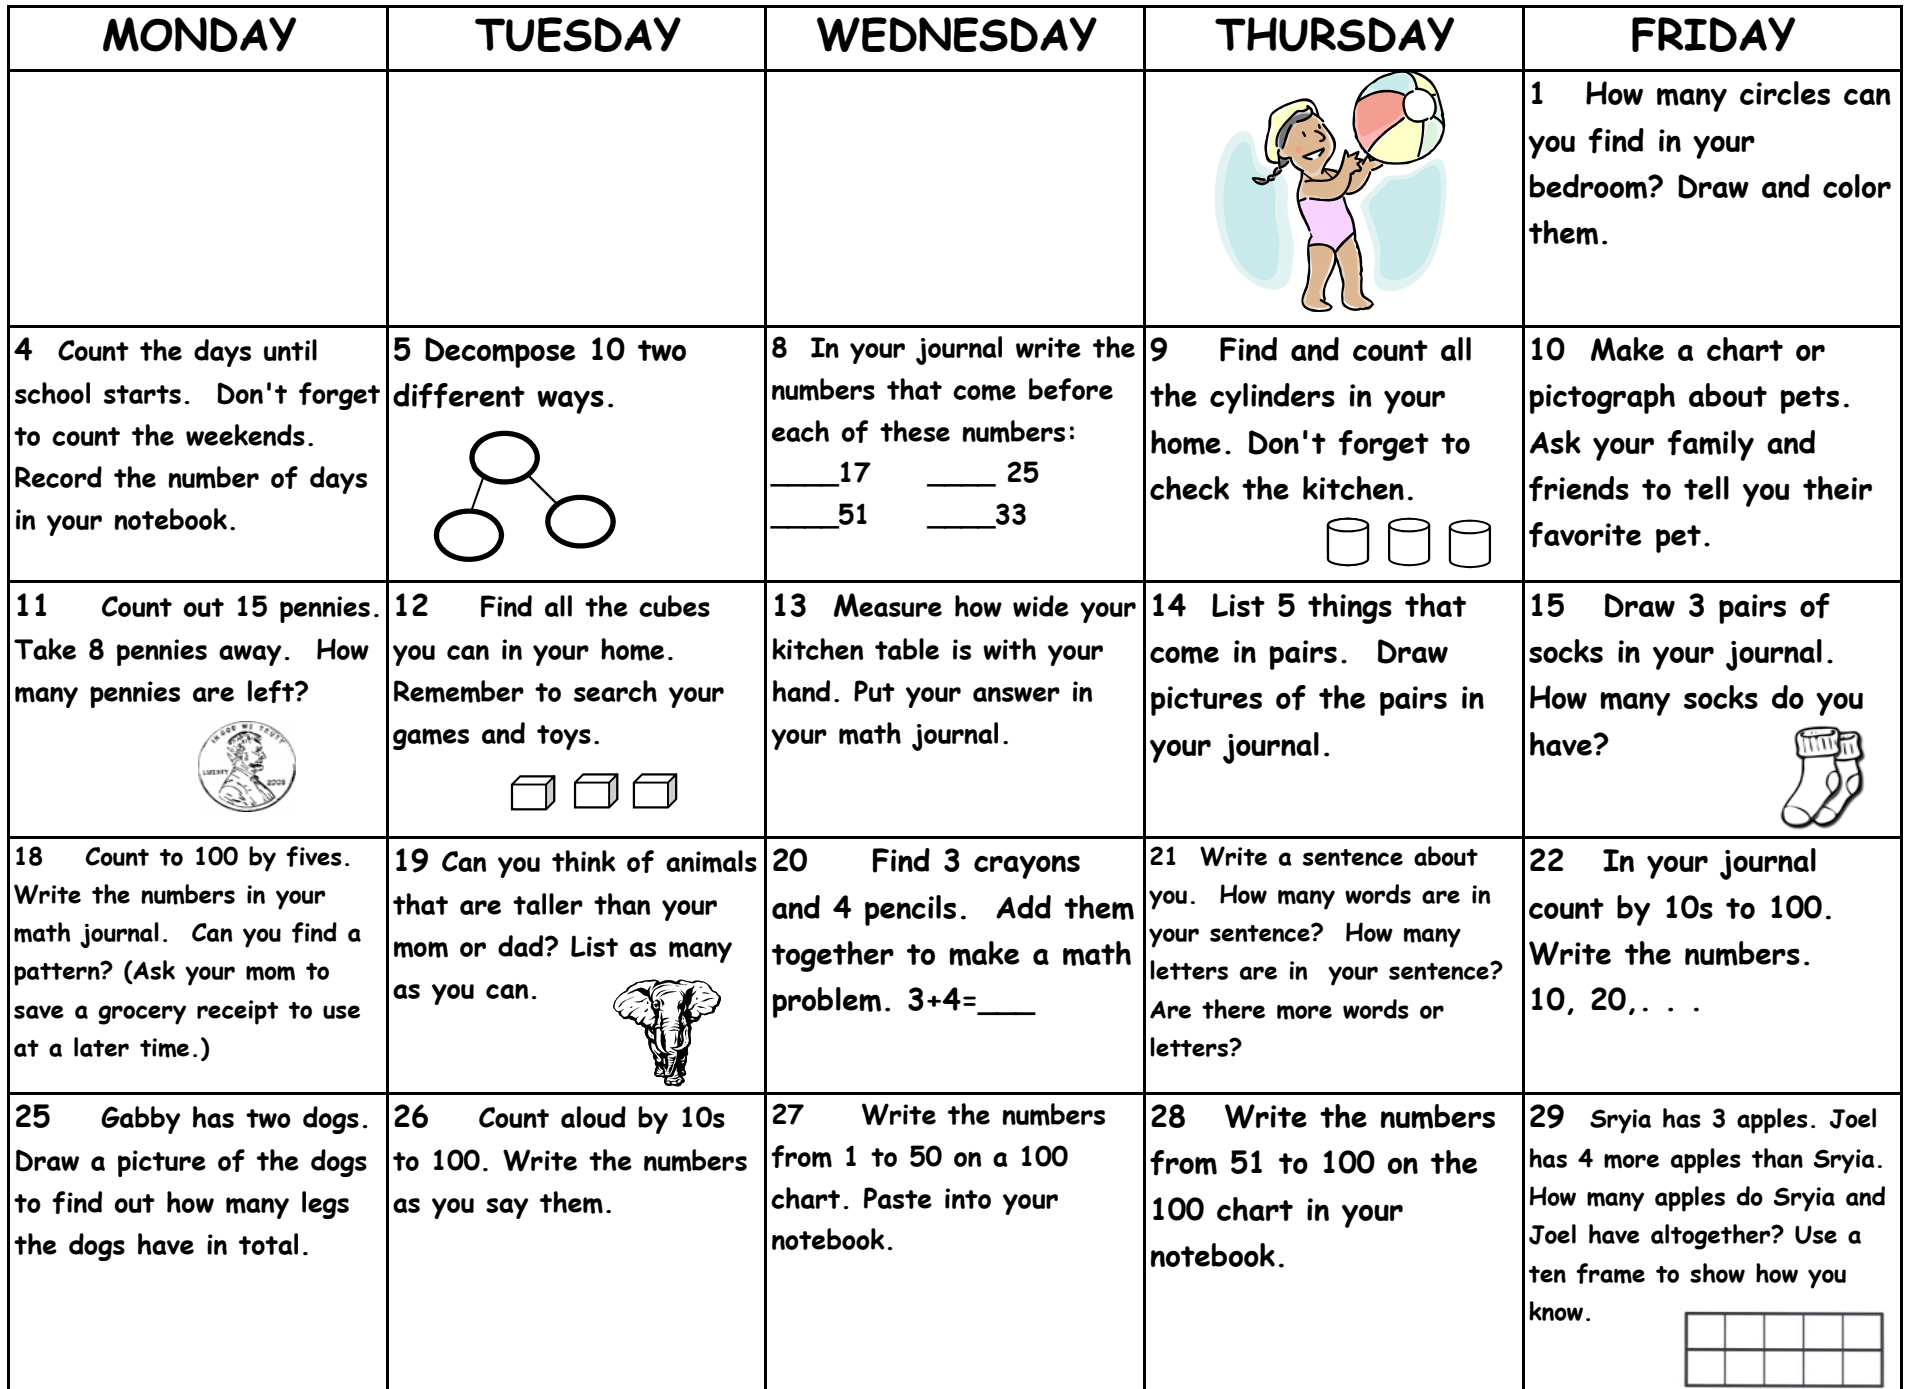 MONDAY
TUESDAY
WEDNESDAY
THURSDAY
FRIDAY
1 How many circles can
you find in your
bedroom? Draw and color
them.
4 Count the days until
school starts. Don't forget
to count the weekends.
Record the number of days
in your notebook.
5 Decompose 10 two
different ways.
8 In your journal write the
numbers that come before
each of these numbers:
____17 ____ 25
____51 ____33
9 Find and count all
the cylinders in your
home. Don't forget to
check the kitchen.
10 Make a chart or
pictograph about pets.
Ask your family and
friends to tell you their
favorite pet.
11 Count out 15 pennies.
Take 8 pennies away. How
many pennies are left?
IN GOD WE TRUST
LIBERTY
2008
12 Find all the cubes
you can in your home.
Remember to search your
games and toys.
13 Measure how wide your
kitchen table is with your
hand. Put your answer in
your math journal.
14 List 5 things that
come in pairs. Draw
pictures of the pairs in
your journal.
15 Draw 3 pairs of
socks in your journal.
How many socks do you
have?
18 Count to 100 by fives.
Write the numbers in your
math journal. Can you find a
pattern? (Ask your mom to
save a grocery receipt to use
at a later time.)
19 Can you think of animals
that are taller than your
mom or dad? List as many
as you can.
20 Find 3 crayons
and 4 pencils. Add them
together to make a math
problem. 3+4=___
21 Write a sentence about
you. How many words are in
your sentence? How many
letters are in your sentence?
Are there more words or
letters?
22 In your journal
count by 10s to 100.
Write the numbers.
10, 20,. . .
25 Gabby has two dogs.
Draw a picture of the dogs
to find out how many legs
the dogs have in total.
26 Count aloud by 10s
to 100. Write the numbers
as you say them.
27 Write the numbers
from 1 to 50 on a 100
chart. Paste into your
notebook.
28 Write the numbers
from 51 to 100 on the
100 chart in your
notebook.
29 Sryia has 3 apples. Joel
has 4 more apples than Sryia.
How many apples do Sryia and
Joel have altogether? Use a
ten frame to show how you
know.